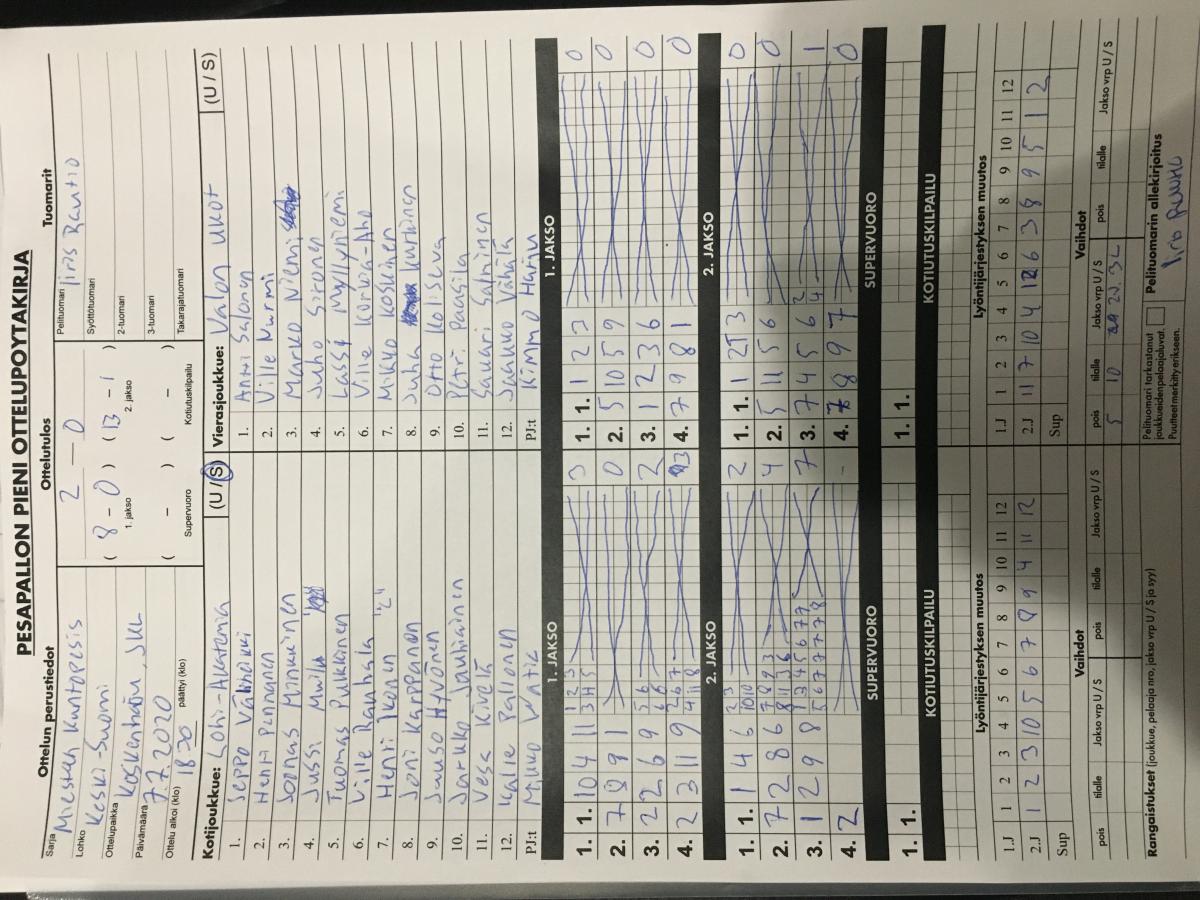 PESÄPALLON PIENI OTTELUPÖYTÄKIRJA
Ottelun perustiedot
Ottelutulos
Tuomarit
Sarja
Mesten Kuntopesis
Lohko
Keski-Suomi
Ottelupaikka
Koskenharju, JKL
Päivämäärä
7.7.2020
Ottelu alkoi (klo) 1830 päättyi (klo)
2 — 0
( 8 – 0 ) ( 13 – 1 )
1. jakso 2. jakso
( – ) ( – )
Supervuoro Kotiutuskilpailu
Pelituomari Iiris Rautio
Syöttötuomari
2-tuomari
3-tuomari
Takarajatuomari
Kotijoukkue: Lohi-Akatemia (U / S)
1. Seppo Välihoikki
2. Henri Pennanen
3. Joonas Minkkinen
4. Jussi
5. Tuomas Pulkkinen
6. Ville Rauhala
7. Henri Ikonen "2"
8. Joni Kapponen
9. Juuso Hyvönen
10. Jarkko Jauhiainen
11. Vesa Kivelä
12. Kalle Pallonen
PJ:t Mikko Vatic
Vierasjoukkue: Valon Ukot (U / S)
1. Antti Salonen
2. Ville Nurmi
3. Marko Niemi
4. Juho Sironen
5. Lassi Myllyniemi
6. Ville Korkea-Aho
7. Mikko Koskinen
8. Juha Kurkinen
9. Otto Koliseva
10. Petri Paasila
11. Sakari Salminen
12. Jaakko Vähälä
PJ:t Kimmo Harju
1. JAKSO
1. 1. 10 4 11 3
2. 7 8 9 1 0
3. 2 2 6 9 2
4. 2 3 11 9 3
1. JAKSO
1. 1. 1 2 3 0
2. 5 10 5 9 0
3. 1 2 3 6 0
4. 7 9 8 1 0
2. JAKSO
1. 1. 1 4 6 2
2. 7 2 8 6 4
3. 1 2 9 8 7
4. 2 -
2. JAKSO
1. 1. 1 2 3 0
2. 5 11 5 6 0
3. 7 4 5 6 1
4. 8 9 7 0
SUPERVUORO
1. 1.
SUPERVUORO
1. 1.
KOTIUTUSKILPAILU
KOTIUTUSKILPAILU
Lyöntijärjestyksen muutos
1.J 1 2 3 4 5 6 7 8 9 10 11 12
2.J 1 2 3 10 5 6 7 8 9 4 11 12
Sup
Lyöntijärjestyksen muutos
1.J 1 2 3 4 5 6 7 8 9 10 11 12
2.J 11 7 10 4 12 6 3 8 9 5 1 2
Sup
Vaihdot
pois tilalle Jakso vrp U / S pois tilalle Jakso vrp U / S
Vaihdot
pois tilalle Jakso vrp U / S pois tilalle Jakso vrp U / S
5 10 2J. 3L
Rangaistukset (joukkue, pelaaja nro, jakso vrp U / S ja syy)
Pelituomari tarkastanut
joukkueiden pelaajaluvat.
Puutteet merkitty erikseen.
Pelituomarin allekirjoitus
Iiris Rautio